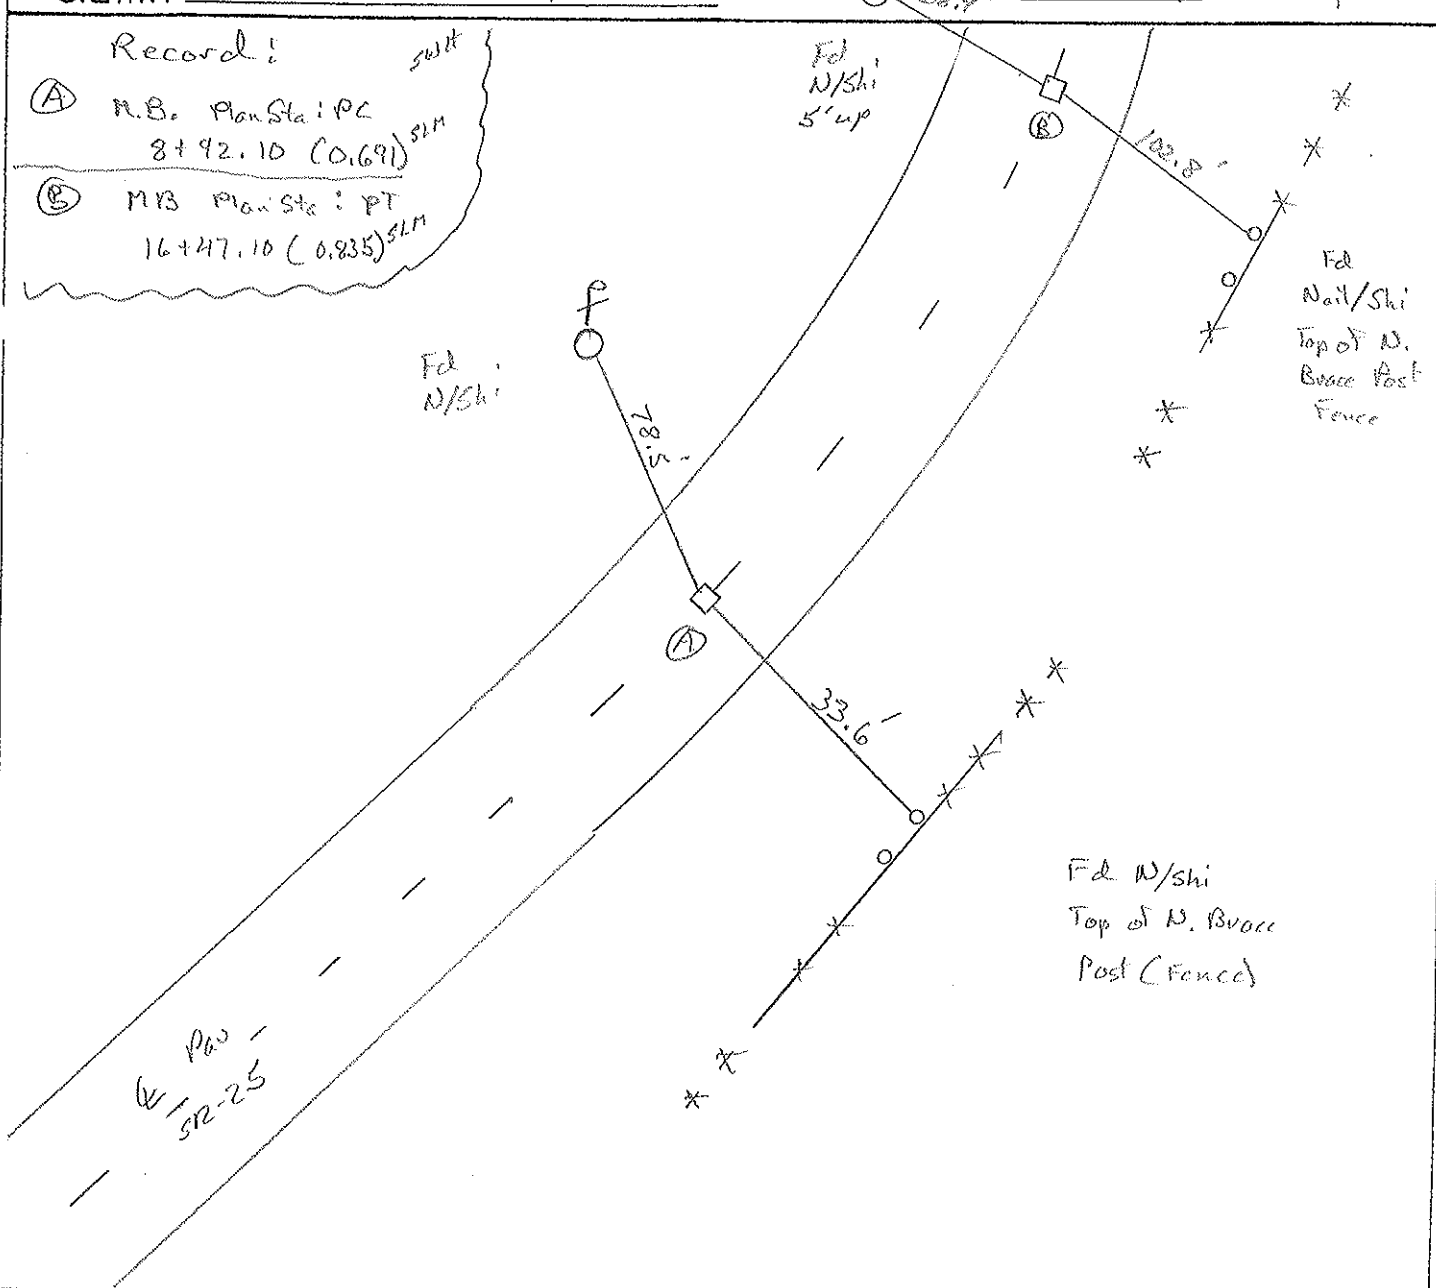 Record:
(A) M.B. Plan Sta: PC
8+92.10 (0.691) SLM
(B) MB Plan Sta: PT
16+47.10 (0.835) SLM
Fd
N/Shi
5' up
(B)
102.8'
Fd
Nail/Shi
Top of N.
Brace Post
Fence
Fd
N/Shi
78.5'
(A)
33.6'
Fd N/shi
Top of N. Brace
Post (Fence)
℄ Pav
SR-25